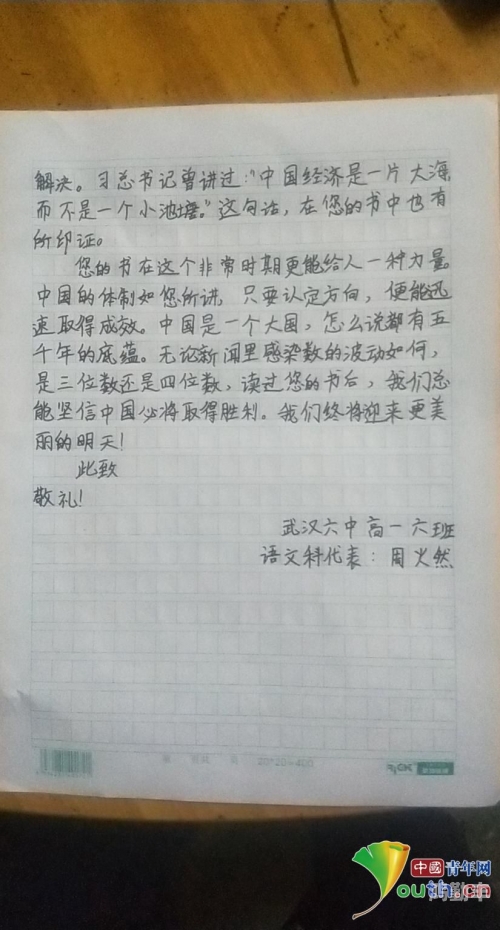 解决。习总书记曾讲过:“中国经济是一片大海,
而不是一个小池塘。”这句话,在您的书中也有
所印证。
您的书在这个非常时期更能给人一种力量。
中国的体制如您所讲,只要认定方向,便能迅
速取得成效。中国是一个大国,怎么说都有五
千年的底蕴。无论新闻里感染数的波动如何,
是三位数还是四位数,读过您的书后,我们总
能坚信中国必将取得胜利。我们终将迎来更美
丽的明天!
此致
敬礼!
武汉六中高一六班
语文科代表:周火然
20*20=400
中國青年网